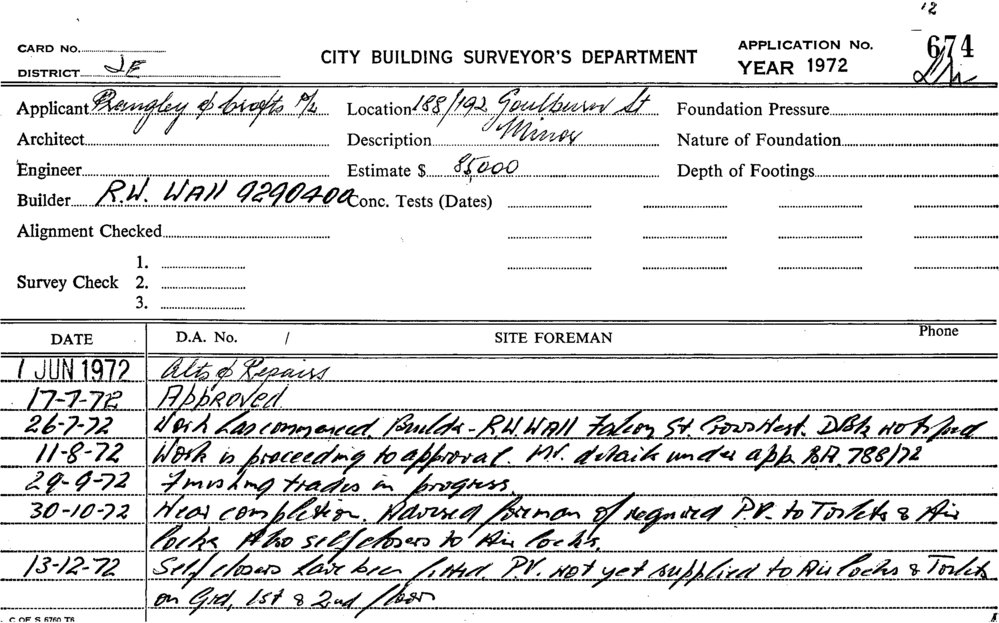 12
CARD No.
DISTRICT JE
CITY BUILDING SURVEYOR'S DEPARTMENT
APPLICATION No. 674
YEAR 1972
Applicant Prangley & Crofts P/L Location 188/192 Goulburn St Foundation Pressure
Architect Description Minor Nature of Foundation
Engineer Estimate $ 85,000 Depth of Footings
Builder R.W. WAll 9290400 Conc. Tests (Dates)
Alignment Checked
1.
Survey Check 2.
3.
DATE D.A. No. / SITE FOREMAN Phone
1 JUN 1972 Alts & Repairs
17-7-72 Approved.
26-7-72 Work has commenced. Builder - R.W. WAll Falcon St. Crows Nest. not
11-8-72 Work is proceeding to approval. details under app. BA. 788/72
29-9-72 Finishing trades in progress.
30-10-72 Near completion. Advised foreman of required P.V. to Toilets & Air
locks Also self closers to Air locks.
13-12-72 Self closers have been fitted. P.V. not yet supplied to Air locks & Toilets
on Grd, 1st & 2nd floor
C OF S 6760 T6